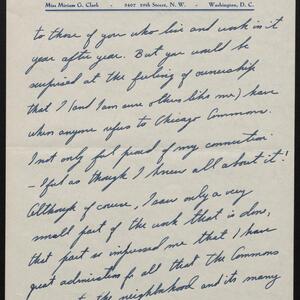 Miss Miriam G. Clark · 2407 19th Street, N. W. · Washington, D. C.
to those of you who live and work in it
year after year. But you would be
surprised at the feeling of ownership
that I (and I am sure others like me) have
when anyone refers to Chicago Commons.
I not only feel proud of my connection
- I feel as though I knew all about it!
Although, of course, I saw only a very
small part of the work that is done,
that part so impressed me that I have
great admiration for all that the Commons
the neighborhood and its many